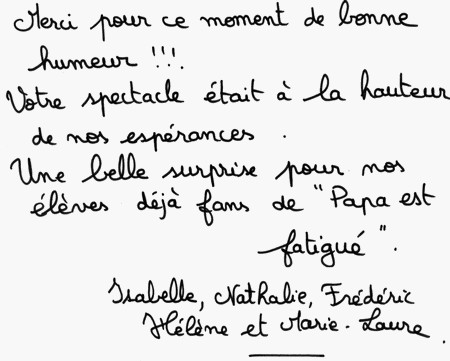 Merci pour ce moment de bonne
humeur !!!.
Votre spectacle était à la hauteur
de nos espérances .
Une belle surprise pour nos
élèves déjà fans de "Papa est
fatigué".
Isabelle, Nathalie, Frédéric
Hélène et Marie-Laure.